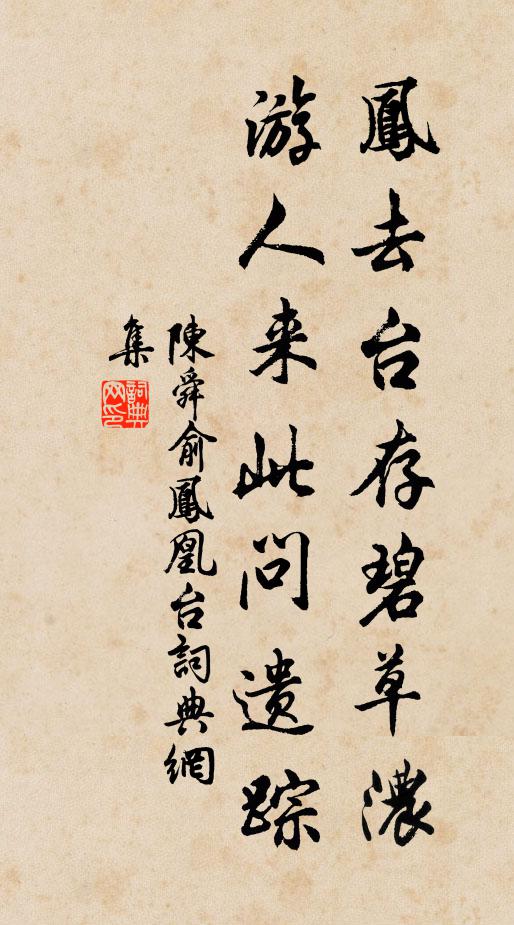 鳳去台存碧草濃
游人来此问遗踪
陳舜俞鳳凰台詞典網
集
詞典
网印